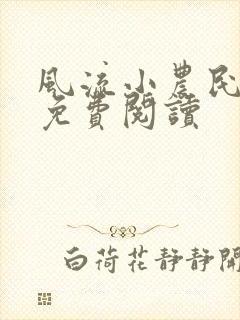 風流小農民
免費閱讀
白荷花靜靜開